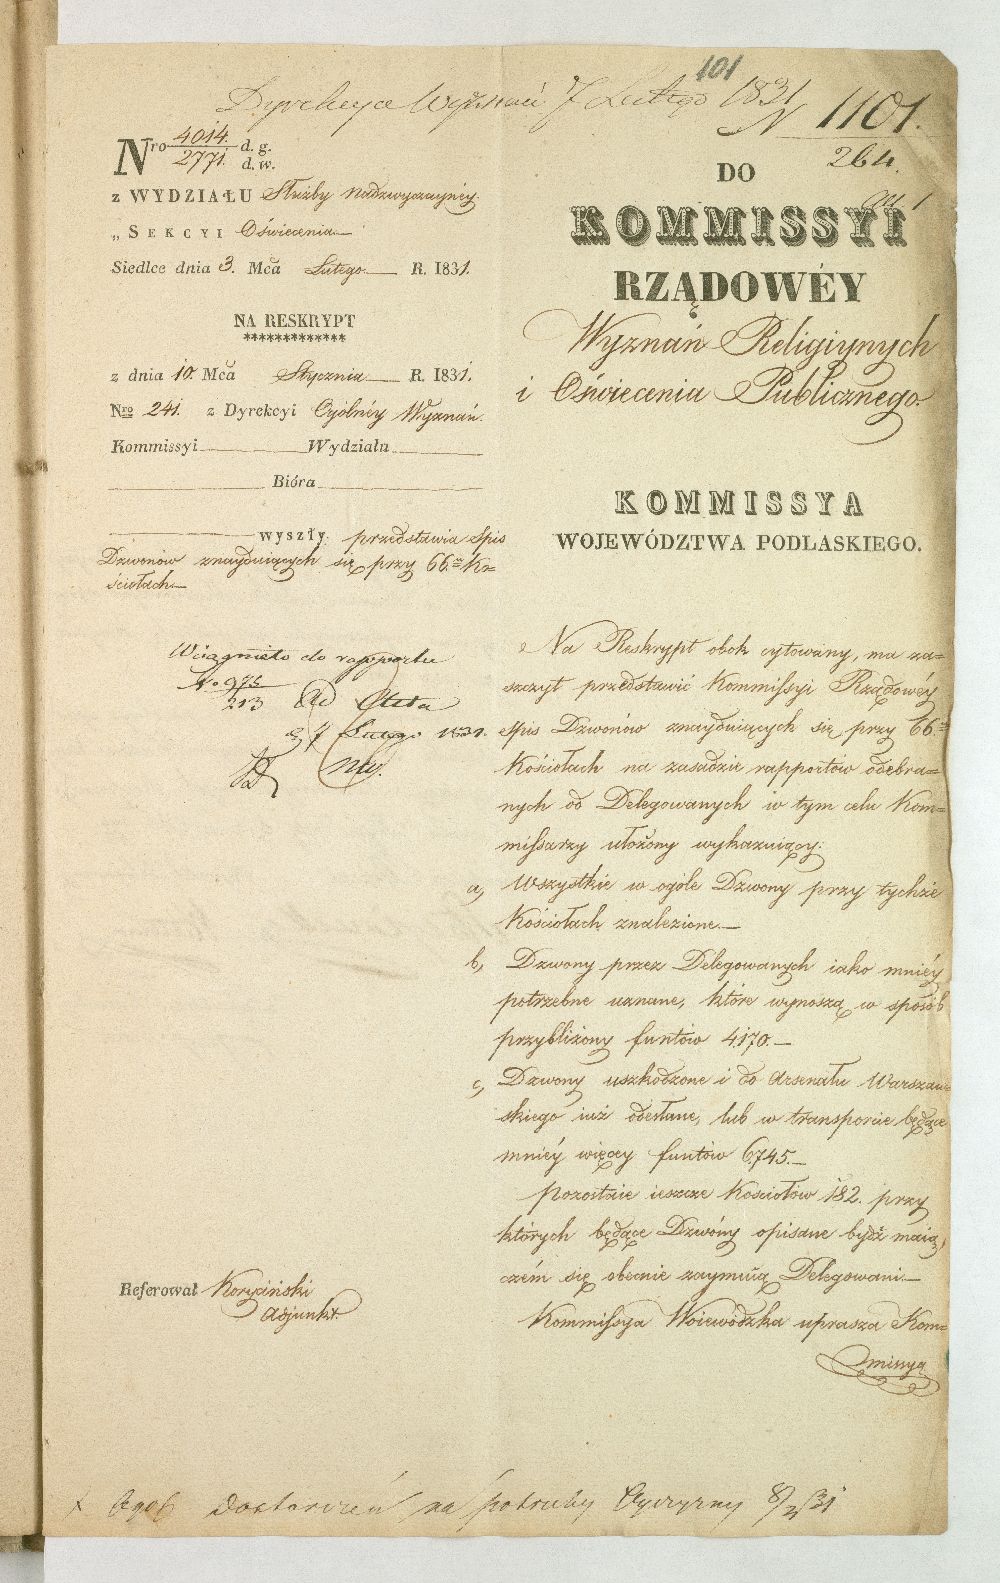 101
Dyrekcya Wyznań 7 Lutego 1831
N 1101.
264.
Nro 4014. d. g.
2771. d. w.
z WYDZIAŁU Służby Nadzwyczayney.
„ SEKCYI Oświecenia
Siedlce dnia 3. Mca Lutego R. 1831.
NA RESKRYPT
*************
z dnia 10. Mca Stycznia R. 1831.
Nro 241. z Dyrekcyi Ogólnéy Wyznań.
Kommissyi Wydziału
Bióra
wyszły. przedstawia Spis
Dzwonów znayduiących się przy 66. Ko=
ściołach
Wciągnięto do rapportu
No 975
213
Ad Acta
d 7 Lutego 1831.
DO
KOMMISSYI
RZĄDOWÉY
Wyznań Religiynych
i Oświecenia Publicznego.
KOMMISSYA
WOJEWÓDZTWA PODLASKIEGO.
Na Reskrypt obok cytowany, ma za=
szczyt przedstawić Kommissyi Rządowéy
Spis Dzwonów znayduiących się przy 66=
Kościołach na zasadzie rapportów odebra=
nych od Delegowanych w tym celu Kom=
missarzy ułożony wykazuiący:
a, Wszystkie w ogóle Dzwony przy tychże
Kościołach znalezione.—
b, Dzwony przez Delegowanych iako mniéy
potrzebne uznane, które wynoszą w sposób
przybliżony funtów 4170.—
c, Dzwony uszkodzone i do Arsenału Warszaw=
skiego iuż odesłane, lub w transporcie będące
mniéy więcey funtów 6745.—
Pozostaie ieszcze Kościołów 182. przy
których będące Dzwony opisane bydź maią,
czém się obecnie zaymuią Delegowani.—
Kommissya Woiewódzka uprasza Kom=
missya
Referował Koryciński
Adjunkt.
dostarczeń na potrzeby Oyczyzny 8/2 31